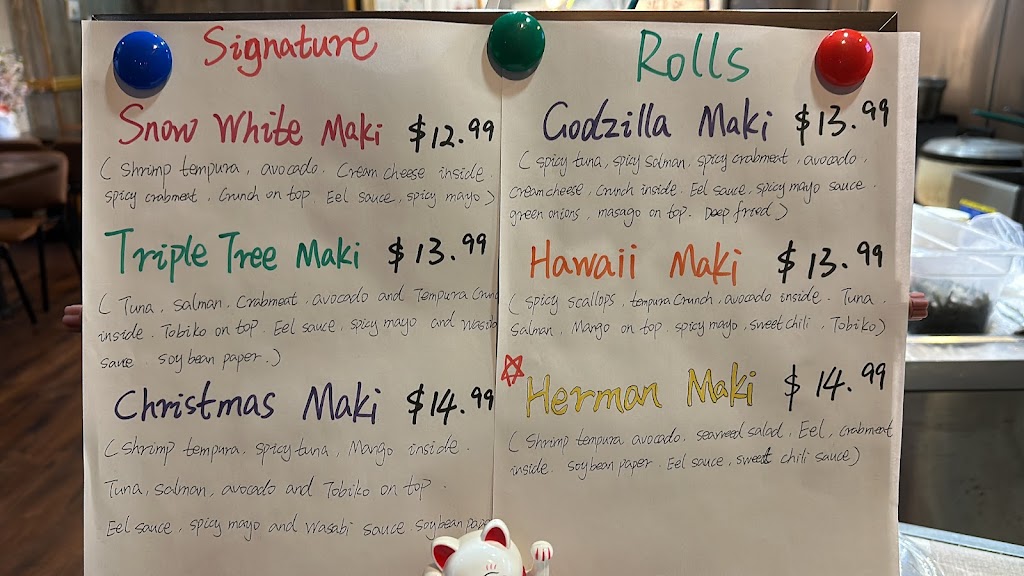 Signature Rolls
Snow White Maki $12.99
( Shrimp tempura, avocado. Cream cheese inside.
spicy crabmeat, Crunch on top. Eel sauce, spicy mayo)
Triple Tree Maki $13.99
( Tuna, Salman, Crabmeat, avocado and Tempura Crunc
inside. Tobiko on top. Eel sauce, spicy mayo and wasab
saure. soybean paper.)
Christmas Maki $14.99
( Shrimp tempura, spicy tuna, Margo inside.
Tuna, Salman, avocado and Tobiko on top.
Eel sauce, spicy mayo and Wasabi sauce. Soybean pape
Godzilla Maki $13.99
( spicy tuna, spicy salman, spicy crabmeat, avocado,
creamcheese, crunch inside. Eel sauce, spicy mayo sauce.
green onions, masago on top. Deep fried)
Hawaii Maki $13.99
( spicy scallops, tempura Crunch, avocado inside. Tuna.
Salman, Margo on top. spicy mayo, sweet chili, Tobiko)
Herman Maki $14.99
( Shrimp tempura, avocado, seaweed salad, Eel, crabmeat
inside. Soybean paper. Eel sauce, sweet chili sauce)